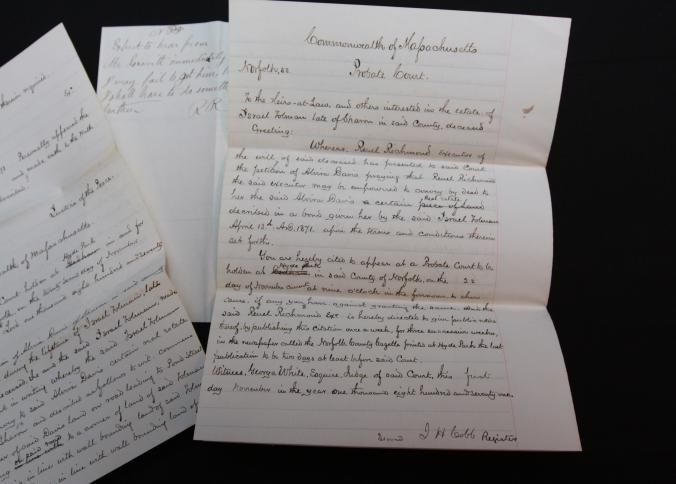 Commonwealth of Massachusetts
Norfolk, ss. Probate Court.
To the Heirs-at-Law, and others interested in the estate of
Israel Tolman late of Sharon in said County, deceased
Greeting:
Whereas, Reuel Richmond Executor of
the will of said deceased has presented to said Court
the petition of Alvira Davis praying that Reuel Richmond
the said executor may be empowered to convey by deed to
real estate
her the said Alvira Davis a certain piece of land
described in a bond given her by the said Israel Tolman
April 12th A.D. 1871. upon the terms and conditions therein
set forth.
Hyde Park
You are hereby cited to appear at a Probate Court to be
holden at in said County of Norfolk, on the 22
day of November at nine o'clock in the forenoon to show
cause, if any you have against granting the same. And the
said Reuel Richmond Ex is hereby directed to give public notice
thereof, by publishing this citation once a week, for three successive weeks,
in the newspaper called the Norfolk County Gazette printed at Hyde Park the last
publication to be two days at least before said Court.
Witness, George White, Esquire, Judge of said Court, this first
day November in the year one thousand eight hundred and seventy one.
J H Cobb Register
Expect to hear from
immediately
I may fail to get him,
I shall have to do
Personally appeared the
and made oath to the truth
Justice of the Peace.
of Massachusetts.
Hyde Park
Court holden at in and for
on the second day of November
one thousand eight hundred and seventy
of Alvira Davis
during the lifetime of Israel Tolman, late
deceased, she and the said Israel Tolman, made
in writing whereby the said Israel Tolman
to said Alvira Davis certain real estate
Sharon and described as follows to wit. commence
of said Davis land on road leading to Pond Street
a corner of land of said Tolman
in line with wall bounding land of said Tolman
in line with wall bounding land of